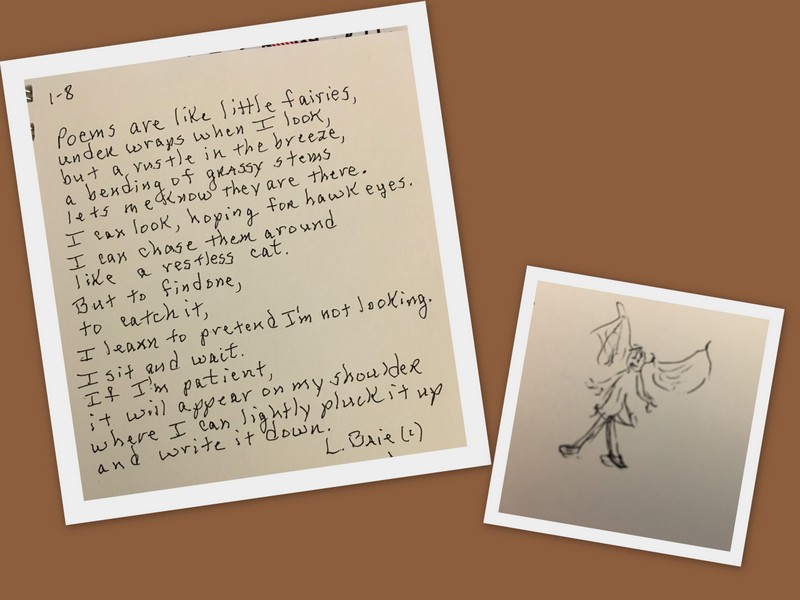 1-8
Poems are like little fairies,
under wraps when I look,
but a rustle in the breeze,
a bending of grassy stems
lets me know they are there.
I can look, hoping for hawk eyes.
I can chase them around
like a restless cat.
But to find one,
to catch it,
I learn to pretend I'm not looking.
I sit and wait.
If I'm patient,
it will appear on my shoulder
where I can lightly pluck it up
and write it down.
L. Brie (c)